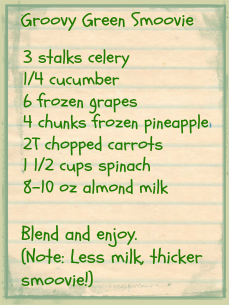 Groovy Green Smoovie
3 stalks celery
1/4 cucumber
6 frozen grapes
4 chunks frozen pineapple
2T chopped carrots
1 1/2 cups spinach
8-10 oz almond milk
Blend and enjoy.
(Note: Less milk, thicker
smoovie!)